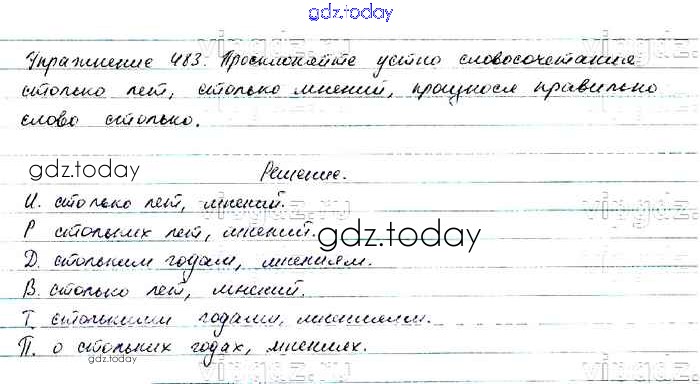 gdz.today
Упражнение 483. Просклоняйте устно словосочетания
столько лет, столько мнений, произнося правильно
слово столько.
gdz.today
Решение.
И. столько лет, мнений.
Р стольких лет, мнений.
gdz.today
Д. стольким годам, мнениям.
В. столько лет, мнений.
Т. столькими годами, мнениями.
П. о стольких годах, мнениях.
gdz.today